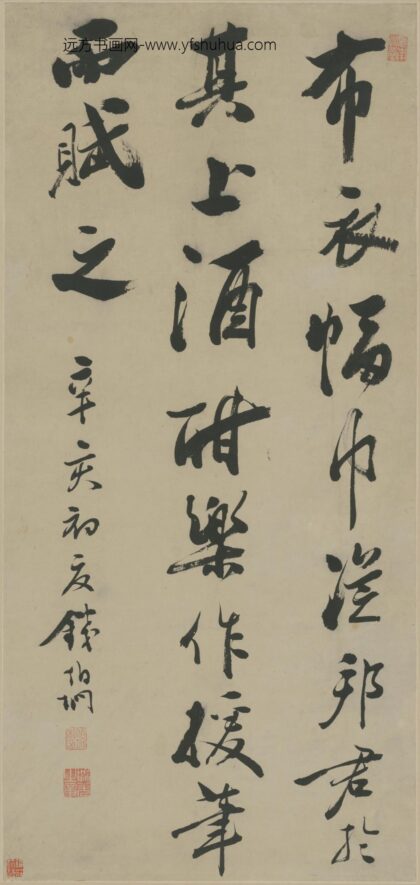 远方书画网-www.yfshuhua.com
布衣幅巾從邦君於
其上酒酣樂作援筆
而賦之
辛亥初夏錢伯坰